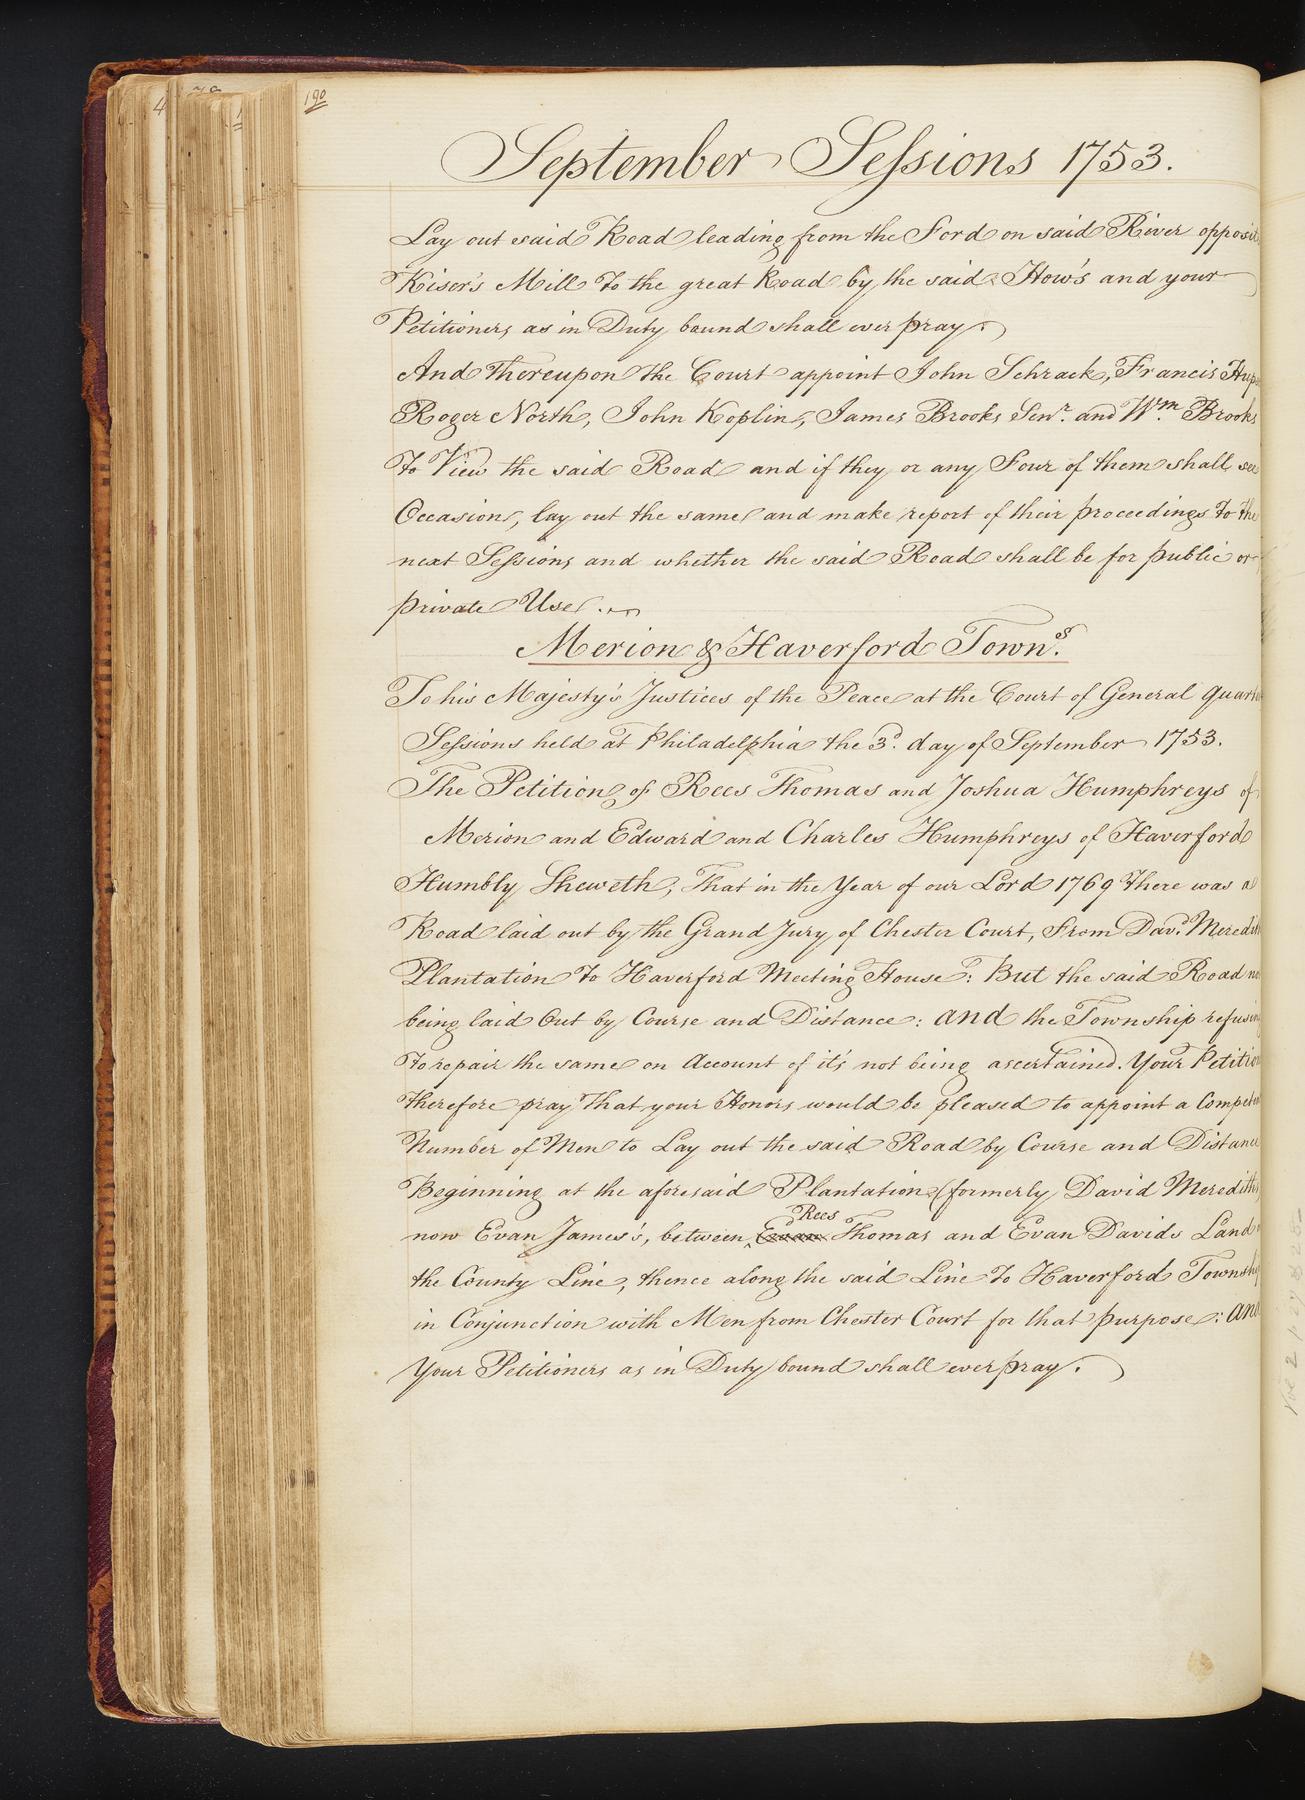 190
September Sessions 1753.
Lay out said Road leading from the Ford on said River opposit
Kiser's Mill To the great Road by the said How's and your
Petitioners as in Duty bound shall ever pray.
And Thereupon the Court appoint John Schrack, Francis
Roger North, John Koplin, James Brooks Senr. and Wm. Brooks
To View the said Road and if they or any Four of them shall see
Occasion, lay out the same and make report of their proceedings To the
next Sessions and whether the said Road shall be for public or
private Use.
Merion & Haverford Towns.
To his Majesty's Justices of the Peace at the Court of General Quarte
Sessions held at Philadelphia the 3d. day of September 1753.
The Petition of Rees Thomas and Joshua Humphreys of
Merion and Edward and Charles Humphreys of Haverford
Humbly Sheweth, That in the Year of our Lord 1769 There was a
Road laid out by the Grand Jury of Chester Court, From Davd. Meredith
Plantation To Haverford Meeting House: But the said Road no
being laid Out by Course and Distance: and the Township refusin
To repair the same on Account of it's not being ascertained. Your Petition
therefore pray That your Honors would be pleased to appoint a Competen
Number of Men to Lay out the said Road by Course and Distance
Beginning at the aforesaid Plantation (formerly David Merediths
now Evan James's, between Evan Rees Thomas and Evan Davids Land
the County Line, thence along the said Line To Haverford Townshi
in Conjunction with Men from Chester Court for that purpose: and
Your Petitioners as in Duty bound shall ever pray.